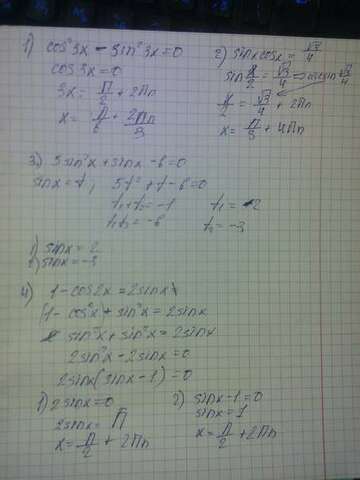 1) cos²3x - sin²3x = 0
cos3x = 0
3x = П/2 + 2Пn
x = П/6 + 2Пn/3
2) sinx cosx = √3/4
sin x/2 = √3/4 = arcsin √3/4
x/2 = √3/4 + 2Пn
x = П/3 + 4Пn
3) 5sin²x + sinx - 6 = 0
sinx = t; 5t² + t - 6 = 0
t₁ + t₂ = -1 t₁ = 2
t₁t₂ = -6 t₂ = -3
1) sinx = 2
2) sinx = -3
4) 1 - cos2x = 2sinx
(1 - cos²x) + sin²x = 2sinx
sin²x + sin²x = 2sinx
2sin²x - 2sinx = 0
2sinx(sinx - 1) = 0
1) 2sinx = 0
2sinx = П
x = П/2 + 2Пn
2) sinx - 1 = 0
sinx = 1
x = П/2 + 2Пn